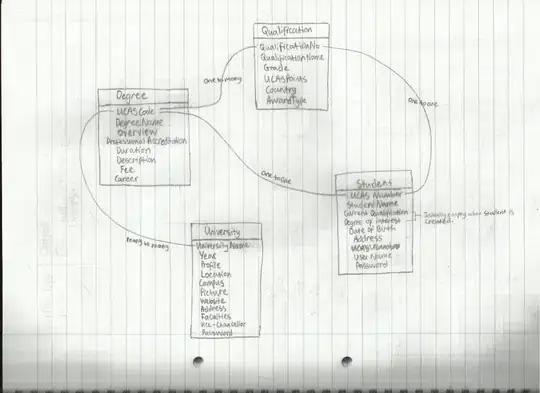 Qualification
QualificationNo
QualificationName
Grade
UCASPoints
Country
AwardType
one to many
Degree
UCASCode
DegreeName
Overview
Professional Accreditation
Duration
Description
Fee
Career
one to one
one to five
Student
UCAS Number
StudentName
Current Qualification
Degree of interest
Date of Birth
Address
User Name
Password
Initially empty when student is
created.
many to many
University
UniversityName
Year
Profile
Location
Campus
Picture
Website
Address
Faculties
Vice-Chancellor
Password